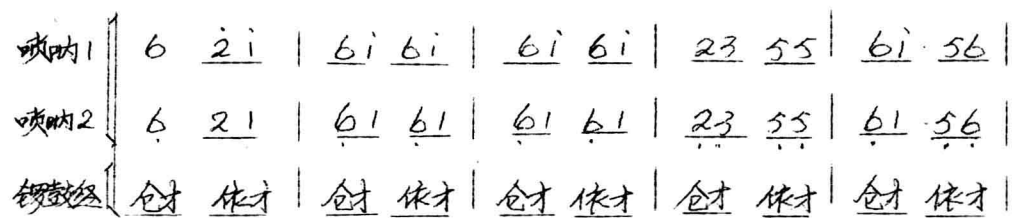 唢呐1 6 2̇i̇ | 6i̇ 6i̇ | 6i̇ 6i̇ | 23 55 | 6i̇ 56 |
唢呐2 6̣ 21 | 6̣1 6̣1 | 6̣1 6̣1 | 2̣3̣ 5̣5̣ | 6̣1 5̣6̣ |
锣鼓经 仓才 依才 | 仓才 依才 | 仓才 依才 | 仓才 依才 | 仓才 依才 |